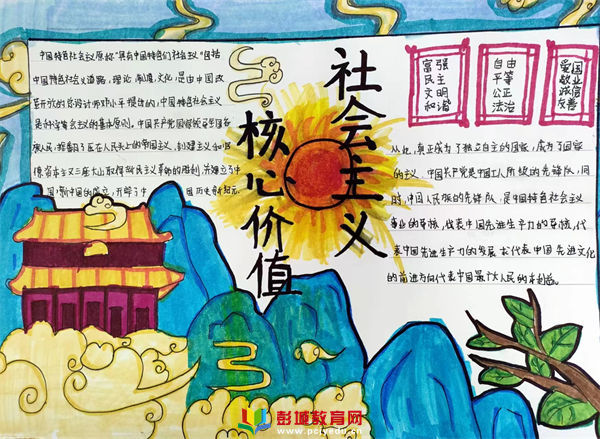 社会主义
核心价值
中国特色社会主义原称"具有中国特色的社会主义"包括
中国特色社会主义道路,理论,制度,文化,是由中国改
革开放的总设计师邓小平提出的,中国特色社会主义
是科学社会主义的基本原则。中国共产党团结领导全国各
族人民,推翻了压在人民头上的帝国主义,封建主义和官
僚资本主义三座大山取得新民主主义革命的胜利,并建立了中
国历史新纪元
富强
民主
文明
和谐
自由
平等
公正
法治
爱国
敬业
诚信
友善
从此,真正成为了独立自主的国家,成为了国家
的主义,中国共产党是中国工人阶级的先锋队,同
时,中国人民族的先锋队,是中国特色社会主义
事业的导核,代表中国先进生产力的导核,代
表中国先进生产力的发展 求代表中国先进文化
的前进方向代表中国最广大人民的利益。
彭城教育网
www.pcjyedu.cn